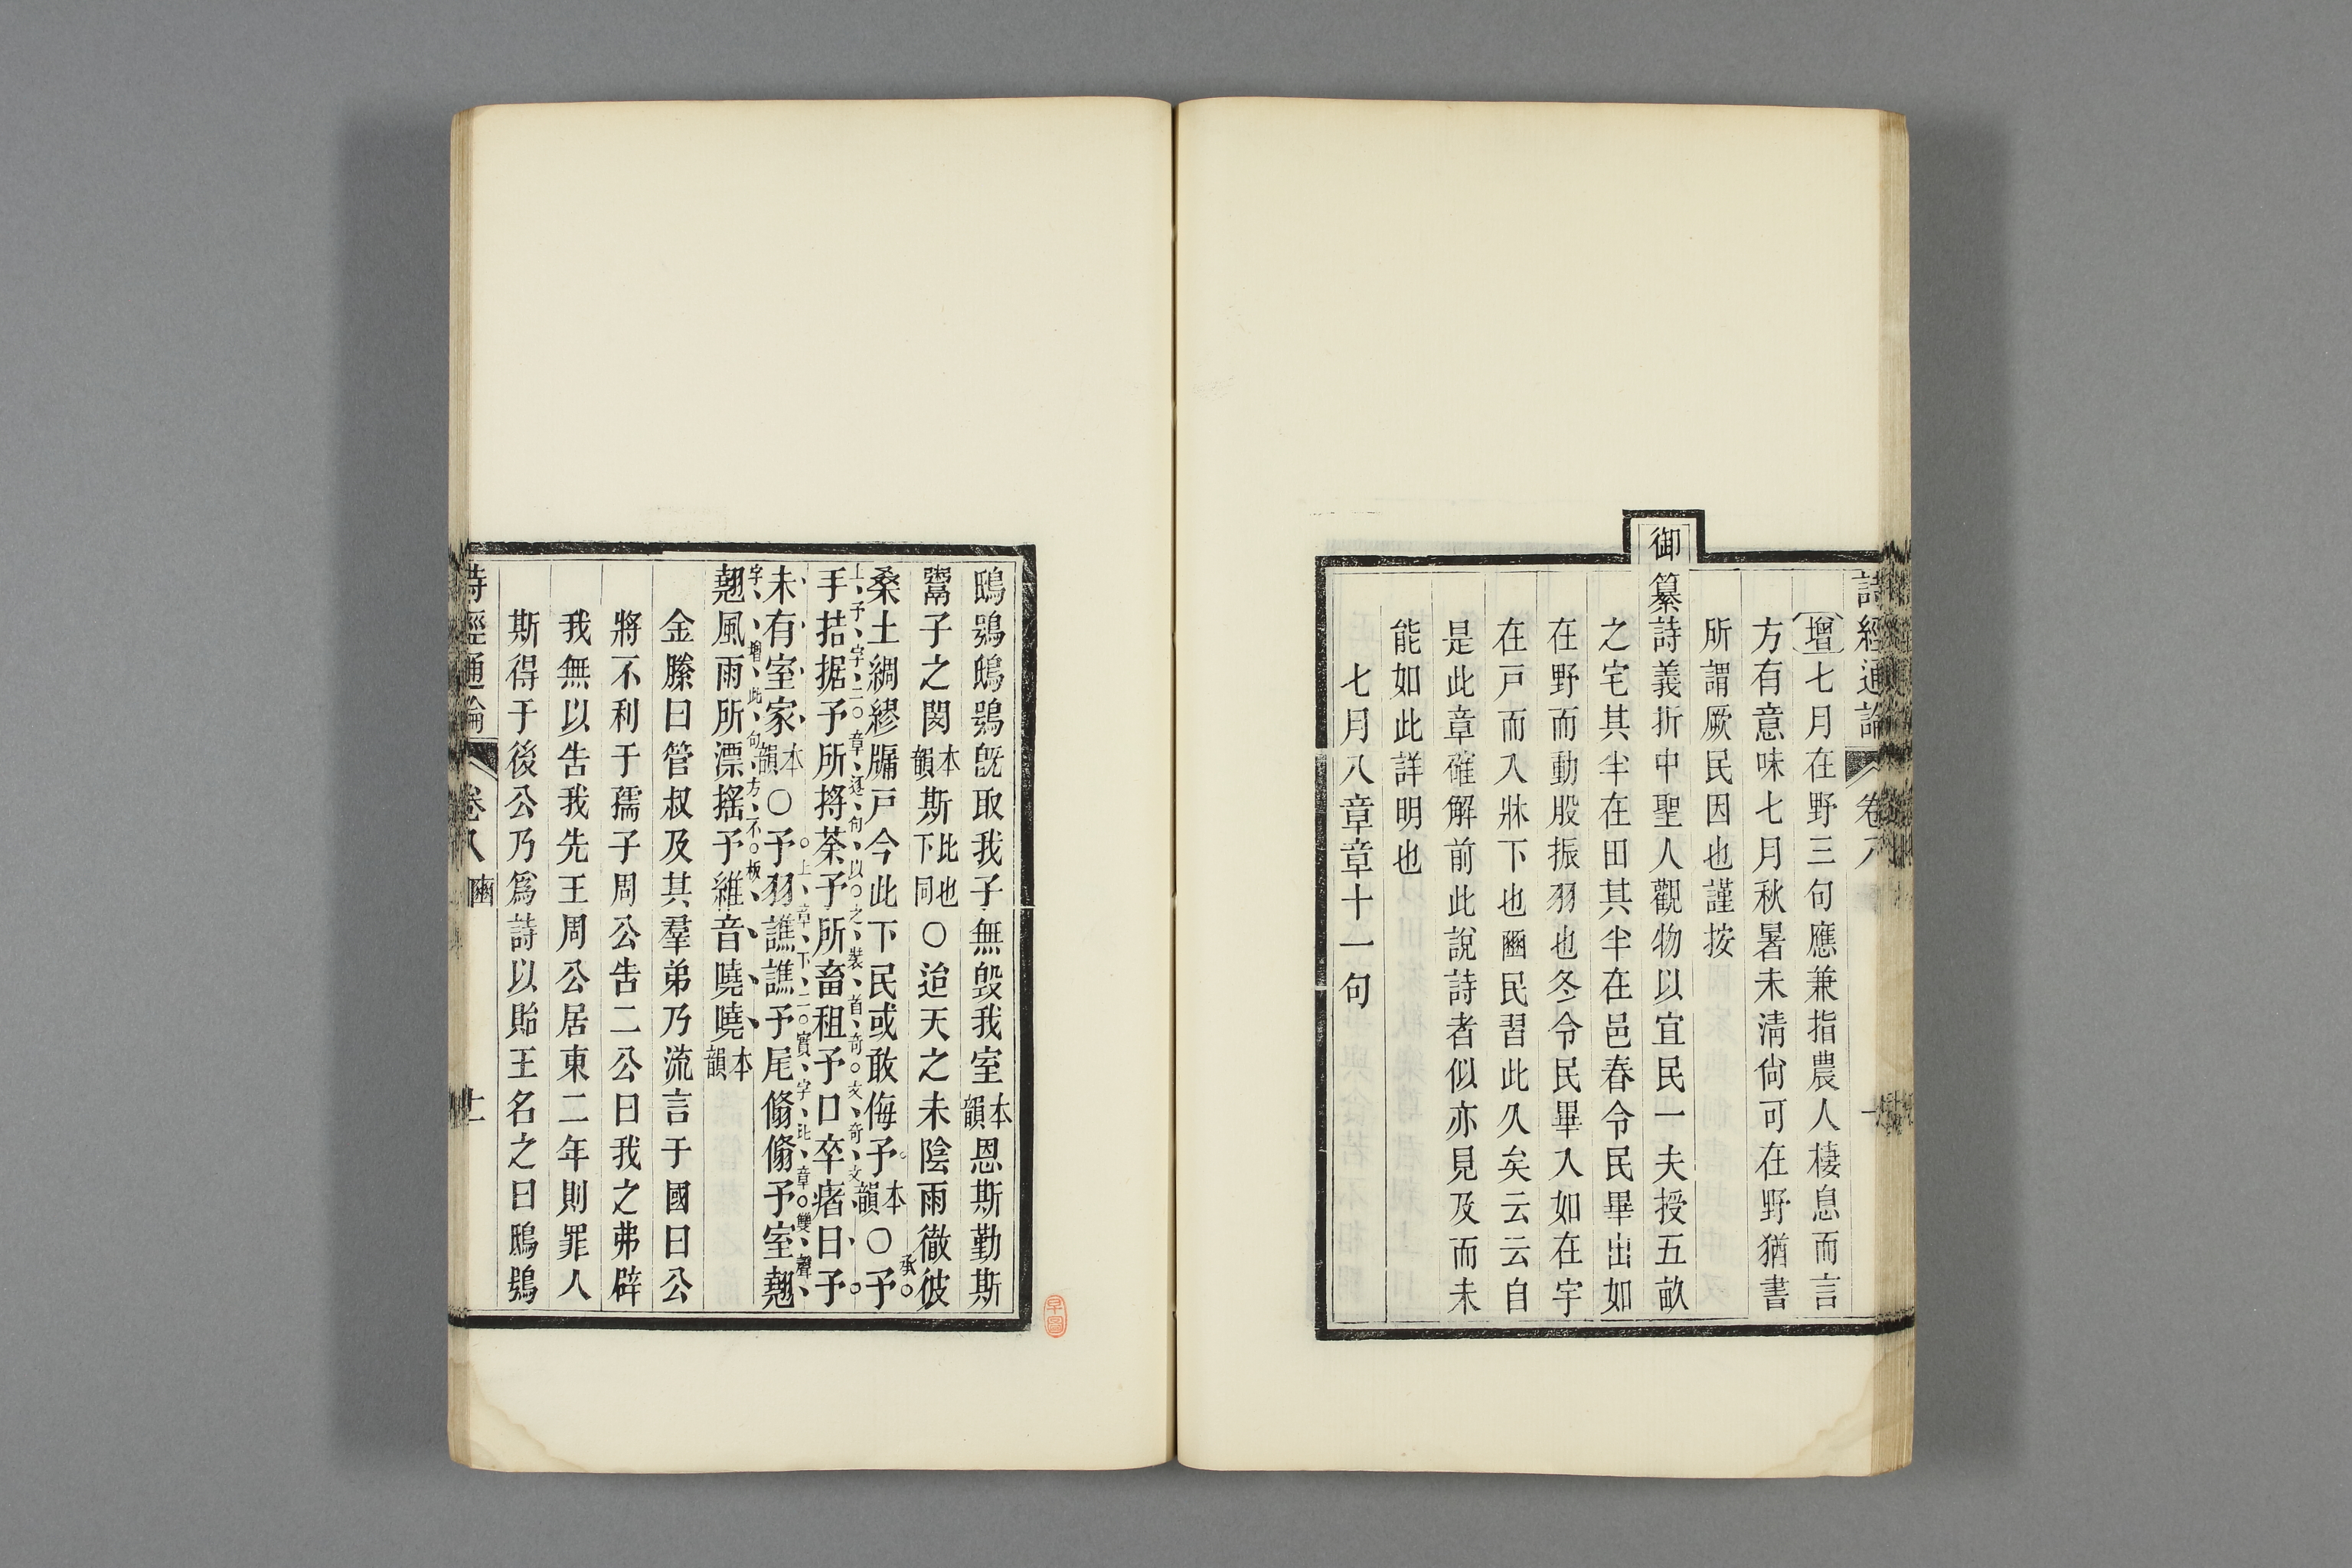 詩經通論 卷八
增七月在野三句應兼指農人棲息而言
方有意味七月秋暑未清尙可在野猶書
所謂厥民因也謹按
御纂詩義折中聖人觀物以宜民一夫授五畝
之宅其半在田其半在邑春令民畢出如
在野而動股振羽也冬令民畢入如在宇
在戸而入牀下也豳民習此久矣云云自
是此章確解前此說詩者似亦見及而未
能如此詳明也
七月八章章十一句
鴟鴞鴟鴞旣取我子無毀我室本韻恩斯勤斯
鬻子之閔本韻斯比也下同○迨天之未陰雨徹彼
桑土綢繆牖戸今此下民或敢侮予本韻○予
承
手拮据予所捋荼予所畜租予口卒瘏曰予
上予字二章逐句以之裝首奇文奇文
未有室家本韻○予羽譙譙予尾翛翛予室翹
上章下二實字比章雙聲
翹風雨所漂搖予維音嘵嘵本韻
字增此句方不板
金縢曰管叔及其羣弟乃流言于國曰公
將不利于孺子周公告二公曰我之弗辟
我無以告我先王周公居東二年則罪人
斯得于後公乃爲詩以貽王名之曰鴟鴞
詩經通論 卷八 豳 十一